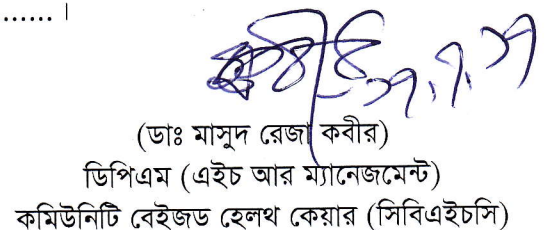 ...... ।
(ডাঃ মাসুদ রেজা কবীর)
ডিপিএম (এইচ আর ম্যানেজমেন্ট)
কমিউনিটি বেইজড হেলথ কেয়ার (সিবিএইচসি)